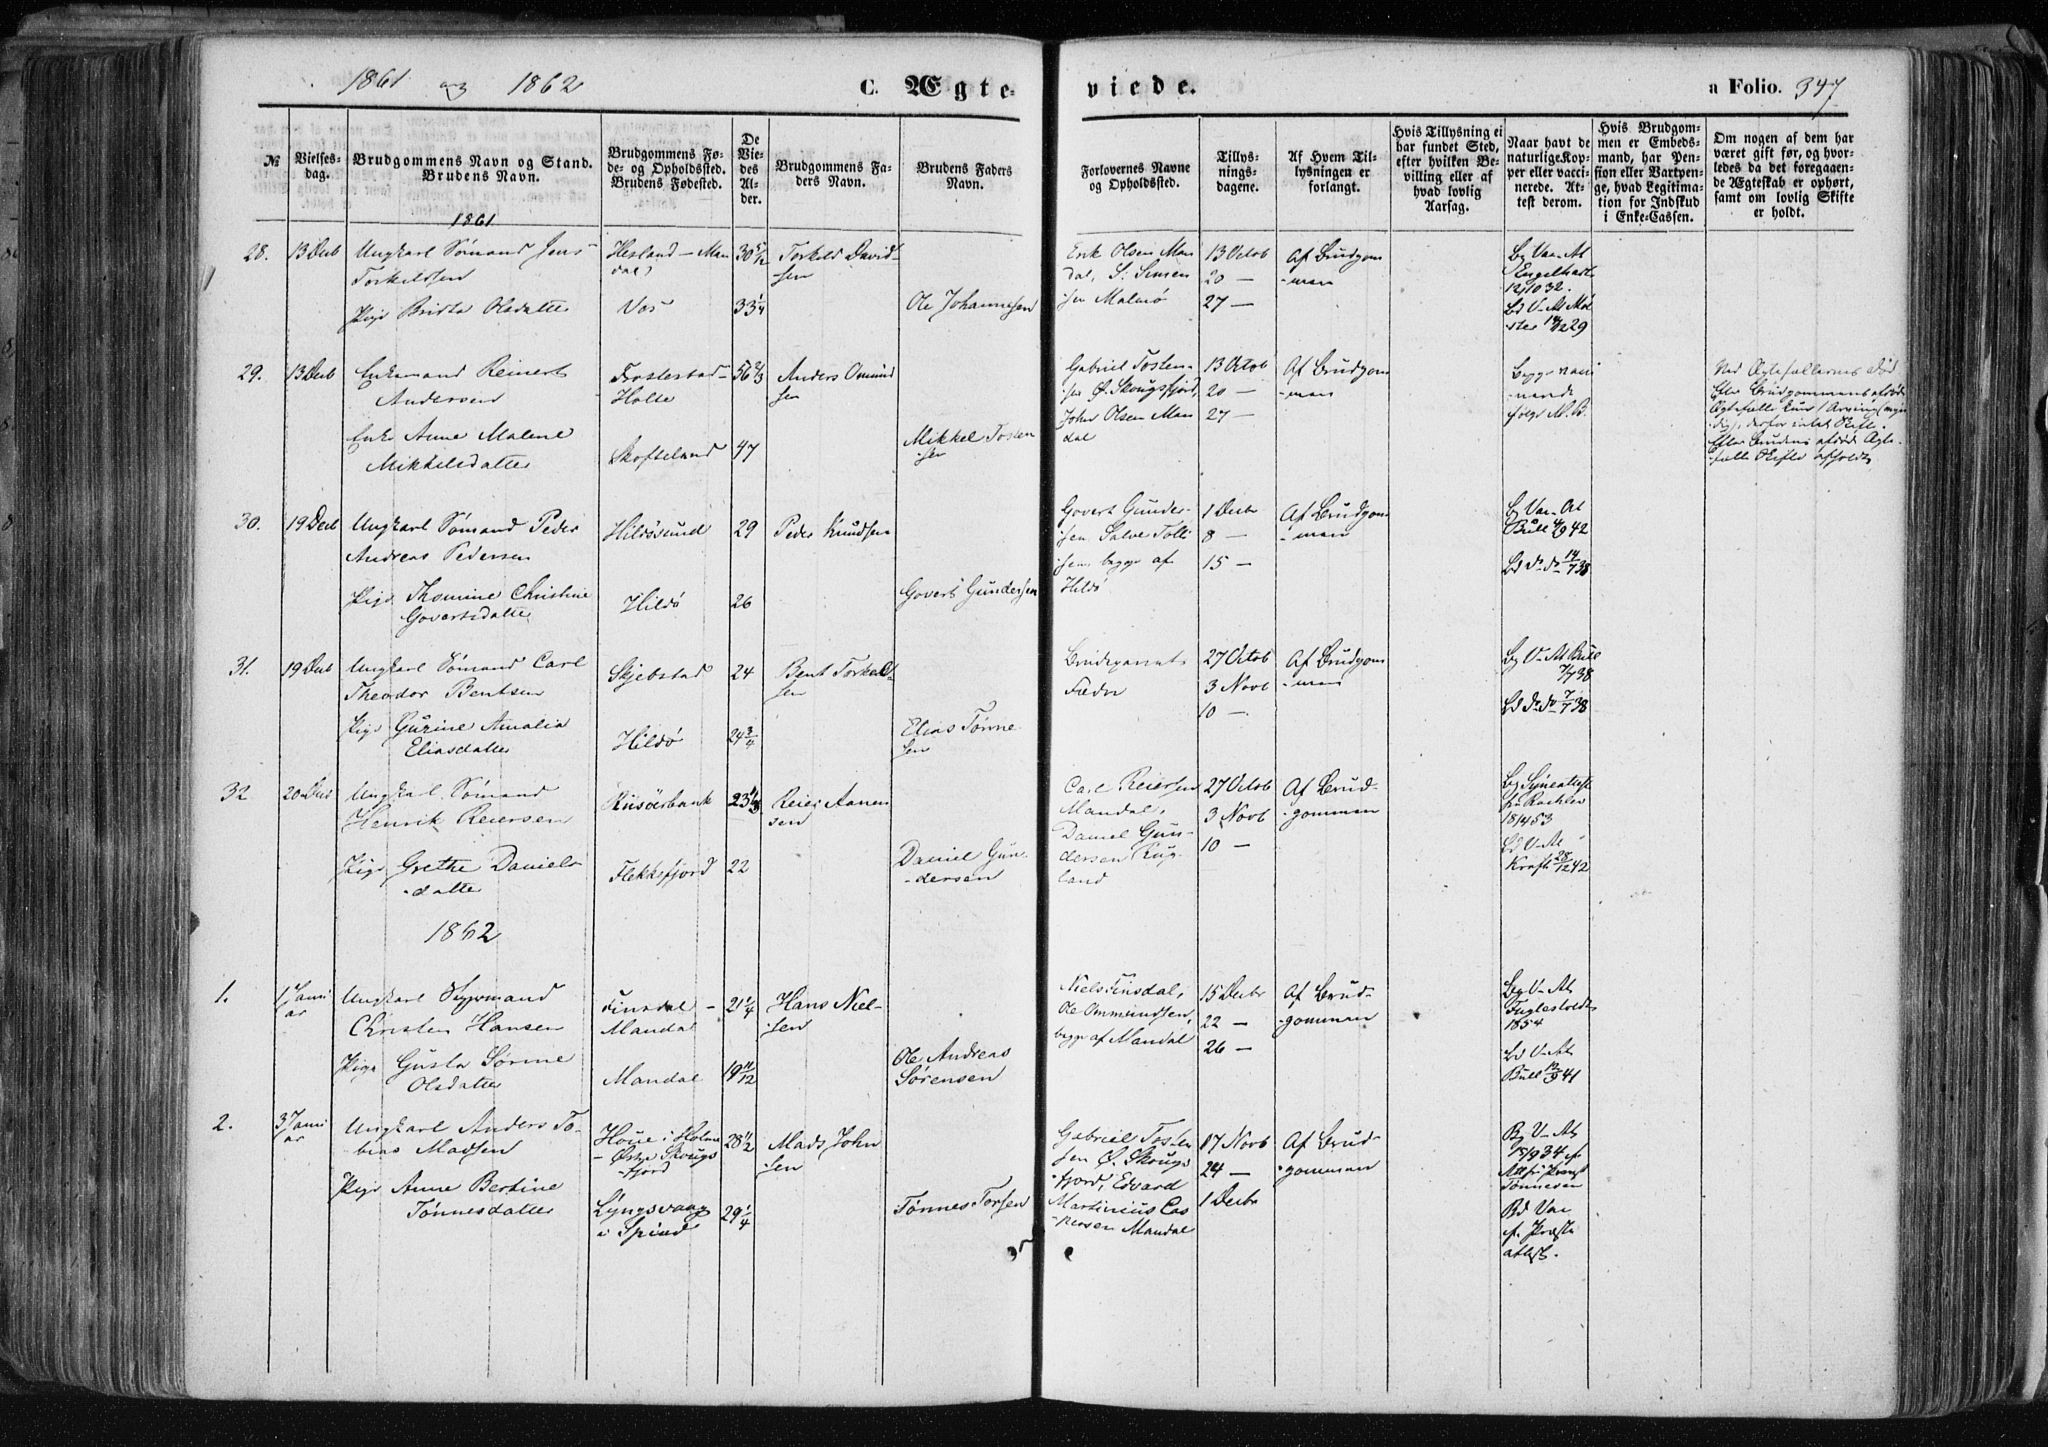 1861 og 1862
C. Ægte-
viede.
a Folio. 347
№
Vielses-
dag.
Brudgommens Navn og Stand.
Brudens Navn.
Brudgommens Fø-
de- og Opholdssted.
Brudens Fødested.
De
Vie-
des
Al-
der.
Brudgommens Fa-
ders Navn.
Brudens Faders
Navn.
Forlovernes Navne
og Opholdssted.
Tillys-
nings-
dagene.
Af Hvem Til-
lysningen er
forlangt.
Hvis Tillysning ei
har fundet Sted,
efter hvilken Be-
villing eller af
hvad lovlig
Aarsag.
Naar havt de
naturlige Kop-
per eller vacci-
nerede. At-
test derom.
Hvis Brudgom-
men er Embeds-
mand, har Pen-
sion eller Vartpen-
ge, hvad Legitima-
tion for Indskud
i Enke-Cassen.
Om nogen af dem har
været gift før, og hvor-
ledes da det foregaaen-
de Ægteskab er ophørt,
samt om lovlig Skifte
er holdt.
1861
28.
13 Decb
Ungkarl Sømand Jens
Torkeldsen
Pige Brista Olsdatter
Hesland - Man
dal
Vos
30 5/12
33 1/4
Torkeld David-
sen
Ole Johannesen
Erik Olsen Man
dal, S. Simen
sen Malmø
13 Octob
20 —
27 —
Af Brudgom
-men
Bg Vac. At
Engelhart
12/10 32.
Bd V. At Mø
ster 14/12 29
29.
13 Decb
Enkemand Reinert
Andersen
Enke Anne Malene
Mikkelsdatter
Holte
Skofteland
56 2/3
47
Anders Omund
sen
Mikkel Tosten
-sen
Gabriel Tosten-
sen Ø. Skougsfjord,
John Olsen Man
dal
13 Octob
20 —
27 —
Af Brudgom
-men
Begge vacci
nerede
følge M. B.
Ved Ægtefællernes Død
Efter Brudgommens afdøde
Ægtefælle kun 1 Arving (myn
dig), derfor intet Skifte.
Efter Brudens afdøde Ægte-
fælle Skifte afholdt
30.
19 Decb
Ungkarl Sømand Peder
Andreas Pedersen
Pige Thomine Christine
Govertsdatter
Hildøsund
Hildø
29
26
Peder Knudsen
Govert Gundersen
Govert Gunder-
sen Salve Tolli
sen, begge af
Hildø
1 Decbr
8 —
15 —
Af Brudgom
-men
Bg Vac. At
Bull 4/9 42
Bd do do 14/7 38
31.
19 Decb
Ungkarl Sømand Carl
Theodor Bentsen
Pige Gurine Amalia
Eliasdatter
Skjebstad
Hildø
24
24 3/4
Bent Torkeld-
sen
Elias Tønne-
sen
Brudeparrets
Fædre
27 Octob
3 Novb
10 —
Af Brudgom
-men
Bg V. At Bull
7/7 38
Bd do do 7/7 38
32
20 Decb
Ungkarl Sømand
Henrik Reiersen
Pige Grethe Daniels-
-datter
Risøerbank
Flekkefjord
23 1/3
22
Reier Aanen
sen
Daniel Gun-
-dersen
Carl Reiersen
Mandal,
Daniel Gun-
dersen Rug-
land
27 Octob
3 Novb
10 —
Af Brud-
-gommen
18/4 53
Bd V. At
Kraft 28/12 42
1862
1.
1 Janu
ar
Ungkarl Styrmand
Christen Hansen
Pige Gusta Sørine
Olsdatter
Finsdal -
Mandal
Mandal
21 1/4
19 11/12
Hans Niel-
sen
Ole Andreas
Sørensen
Niels Finsdal,
Ole Ommundsen,
begge af Mandal
15 Decbr
22 —
26 —
Af Brud-
-gommen
Bg V. At
Fuglestvedt
1854
Bd V. At
Bull 12/9 41
2.
3 Janu
ar
Ungkarl Anders To-
bias Madsen
Pige Anne Bertine
Tønnesdatter
Houe i Holme
- Østre Skougs
-fjord
Lyngsvaag
i Spind
28 1/2
29 1/4
Mads John
sen
Tønnes Torsen
Gabriel Tosten
sen Ø. Skougs
fjord, Edvard
Martinius Cas
persen Mandal
17 Novb
24 —
1 Decbr
Af Brud-
-gommen
Bg V. At
18/9 34 af
Tønnesen
Bd Vac
f. Præste
attest.